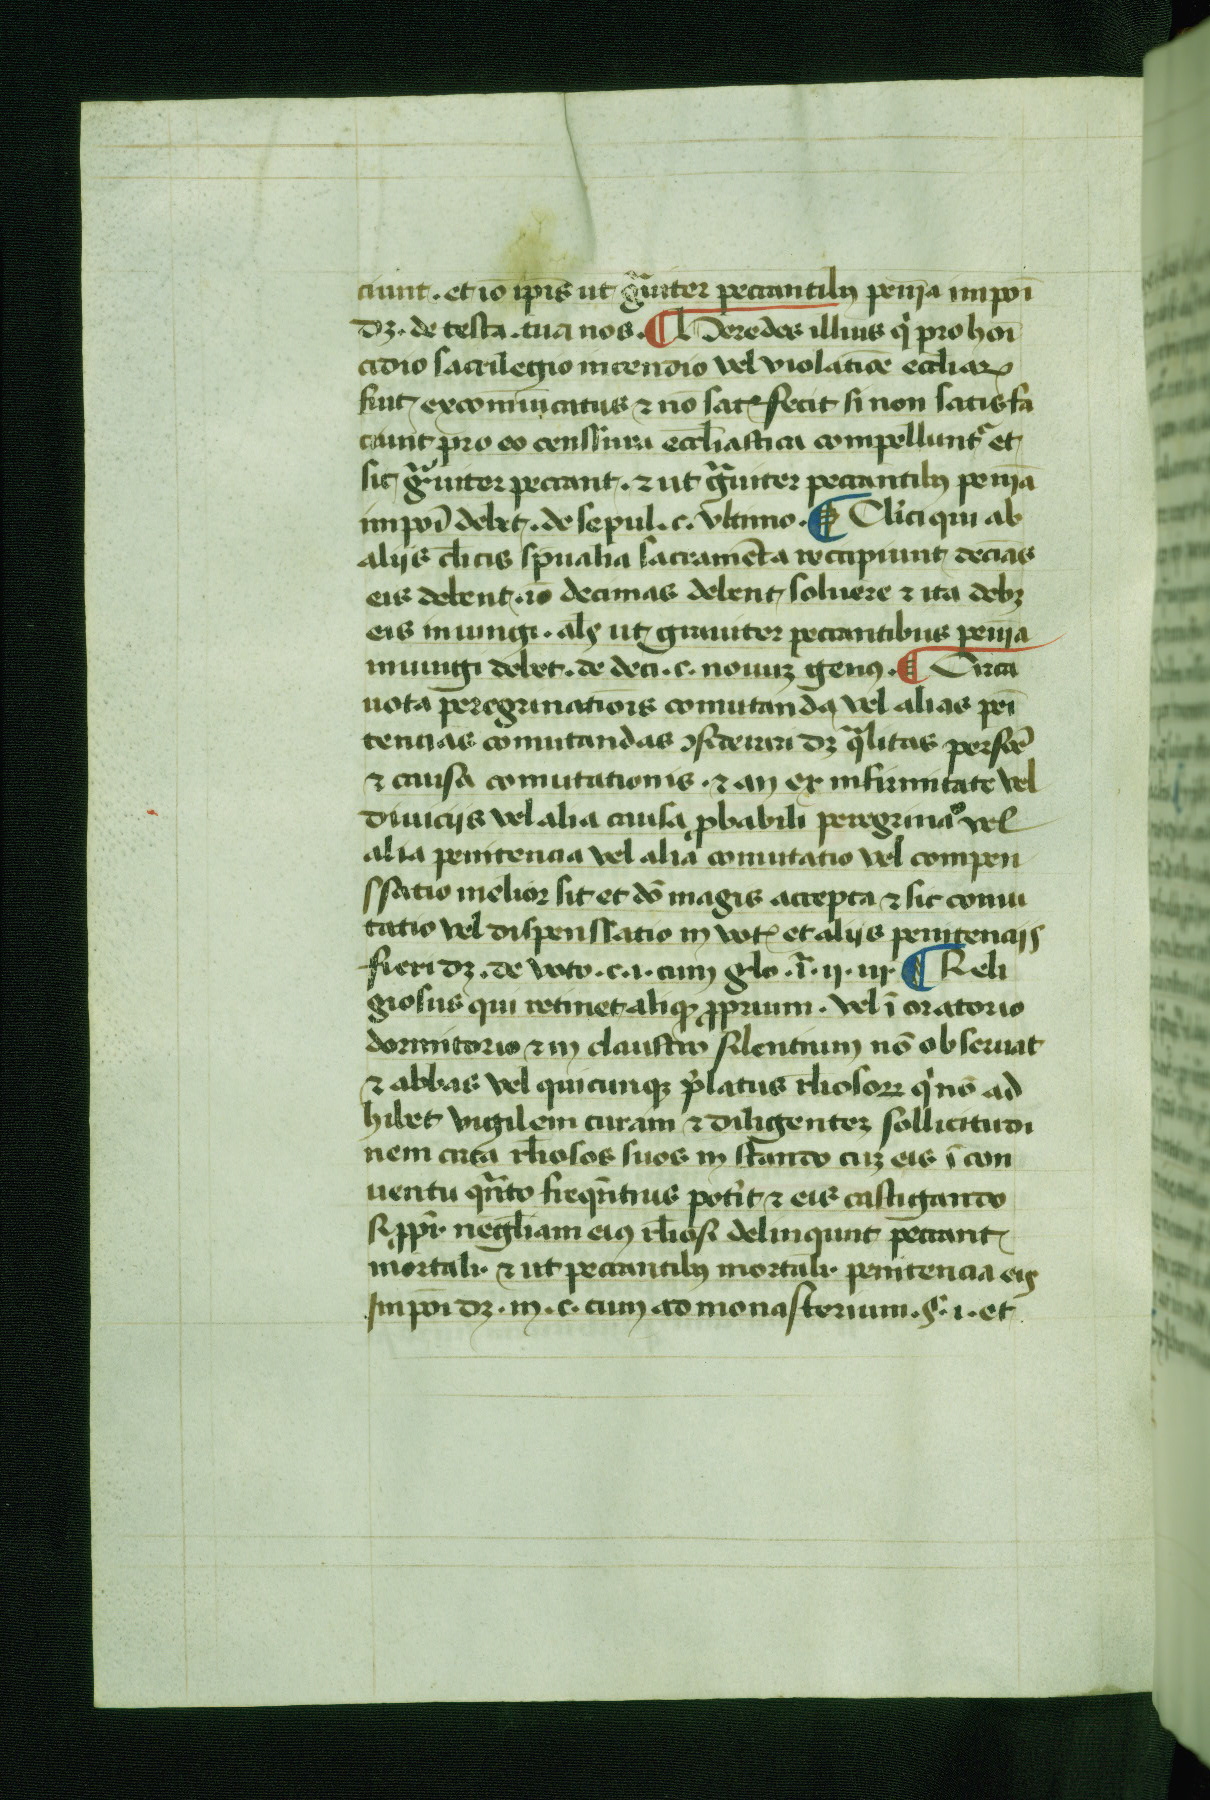 ciunt. et iō ip̄is ut gͣuiter peccantibꝫ peñia impoī
dꝫ. de testa. tua nos. ¶ Heredes illius qͥ pro hoī
cidio sacrilegio incendio vel violatiōe eccliaꝝ
fuit excommūicatus ⁊ nō satꝭ fecit si non satisfa
ciunt pro eo censsura eccl̄iastica compellunt᷑ et
sic gͣuiter peccant. ⁊ ut gͣuiter peccantibꝫ peniā
impoī debet. de sepul. c. vltimo. ¶ Cl̓ici qui ab
alijs cl̄icis sp̄ualia sacramēta recipiunt decīas
eis debent. iō decimas debent soluere ⁊ ita debꝫ
eis iniungi. alꝭ ut grauiter peccantibus peñia
iniungi debet. de deci. c. nouuꝫ genꝰ. ¶ Circa
uota peregrinatiōis comutanda vel alias peī
tencias comutandas ↄsiderari dꝫ qͣlitas persōe
⁊ causa comutationis. ⁊ an ex infirmitate vel
diuicijs vel alia causa ꝓbabili peregrinaͦ vel
alia penitencia vel alia comutatio vel compen
ssatio melior sit et dō magis accepta ⁊ sic comu
tatio vel dispenssatio in votꝭ et alijs penitencijs
fieri dꝫ. de voto. c. i. cum glo. ī. ij. iij. ¶ Reli
giosus qui retinet aliqꝫ ꝓprium. vel ī oratorio
dormitorio ⁊ in claustro silentium nō obseruat
⁊ abbas vel quicunqꝫ p̄latus rl̄iosoꝝ qͥ nō ad
hibet vigilem curam ⁊ diligentez sollicitudi
nem circa rl̄iosos suos in stando cuꝫ eis ī con
uentu qn̄to freqn̄tius potīt ⁊ eis castigando
si ꝓpr̄. negl̄iam eiꝰ rl̄iosi delinqunt peccant
mortalī. ⁊ ut peccantibꝫ mortalī. penitencia eis
impoī dꝫ. in. c. cum ad monasterium. §. i. et